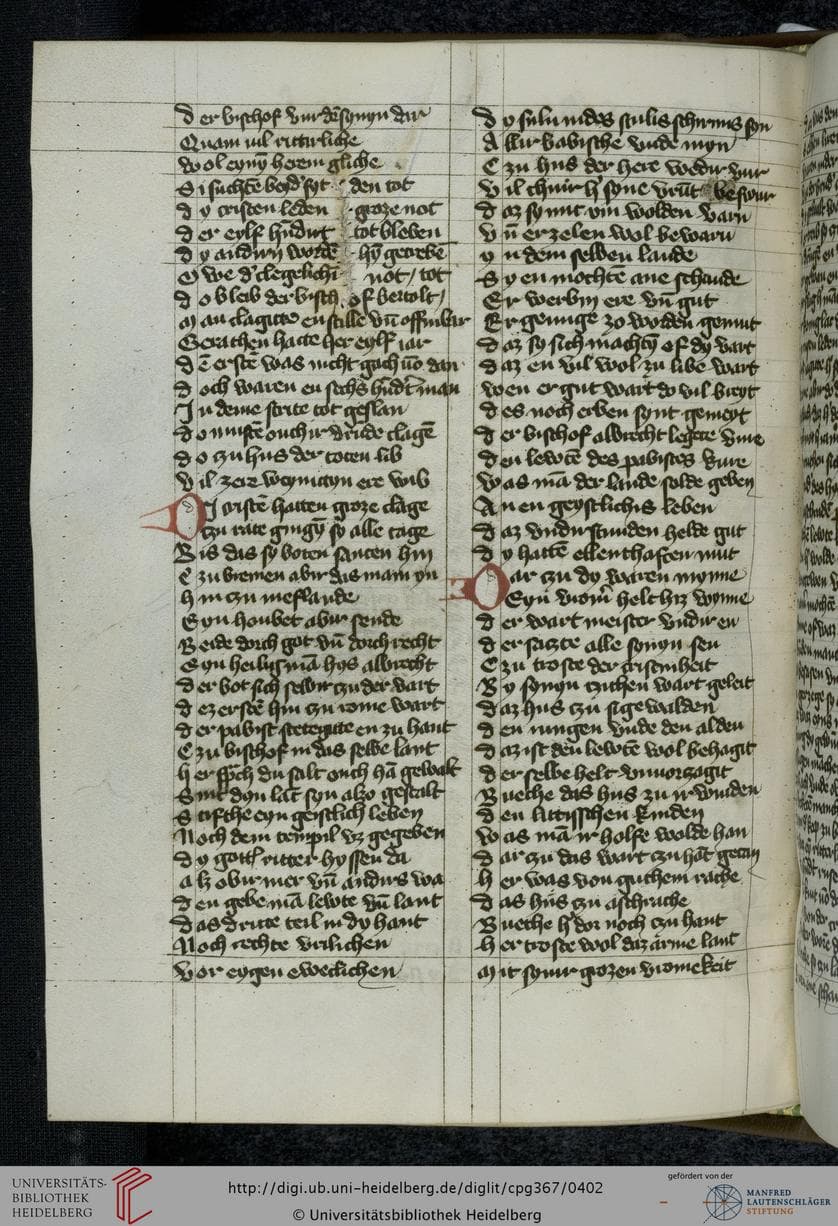 Der bischof vur de synyn dar
Quam vil ritterliche
Wol eyny herem gliche
Si suchtē beyd' syt den tot
Dy cristen leden groze not
Der eylf hūdirt tot bleben
Dy andirn wordē hȳ getrebē
O we d' clegelichī not / tot
Do bleib der bisch of bertolt /
Man clagitte en stille vn̄ offinbar
Gerathen hatte her eylf iar
Dē erstē was nicht goch
Doch waren en sechs hūdt man
In deme strite tot geslan
Do mustē ouch ir vrūde clagē
Do czu hus der toten lib
Vil zere weynityn ere wib
DI cristē hatten groze clage
Czu rate gingȳ sy alle tage
Bis das sy boten santen hin
Czu bremen abir das mam yn
Hin czu nieflande
Eyn houbet abir sende
Beide dorch got vn̄ dorch recht
Eyn heilig mā hys albrecht
Der bot sich selbir czu der vart
Dez erstē hin czu rome wart
Der pabist stetegute en zu hant
Czu bischof in das selbe lant
Her sp̄ch du salt ouch hā gewalt
Sint dyn lāt syn alzo gestalt
Stifthe eyn geistlich leben
Noch dem tempil vz gegeben
Dy gottꝭ ritter hyssen da
Alz obir mer vn̄ andirs wa
Den gebe mā lewte vn̄ lant
Das dritte teil in dy hant
Noch rechte vrilichen
Vor eygen eweclichen
Dy suln in des stulis schirmis syn
Allir babische vnde myn
Czu hus der here wedir vur
Vil thuir h' syne vrūt beswur
Daz sy mit ym wolden varn
Vn̄ erzelen wol bewarn
Yn dem selben lande
Sy en mochte ane schande
Er werbin ere vn̄ gut
Er genuge zo worden gemut
Daz sy sich machtȳ of dy vart
Daz en vil wol zu libe wart
Wen er gut wart do vil breyt
Des noch erben synt gemeyt
Der bischof albrecht legete vme
Den lewtē des pabistes kure
Was mā der lande solde geben
An en geystlichis leben
Daz vndirstunden helde gut
Dy hattē ellenthaften mut
Dar czu dy waren mynne
Eyn vromī helt hiz wynne
Der wart meister vndir en
Der saczte alle synyn sen
Czu troste der cristenheit
By synyn cziten wart geleit
Daz hus czu sigewalden
Den iungen vnde den alden
Daz ist den lewtē wol behagit
Der selbe helt vnuorzagit
Bueche das hus zu wenden
Den littisschen kinden
Was mā ir holfe wolde han
Dar czu das wart czu hāt getan
Her was von guthem rathe
Das hus czu aschrathe
Bueche h' dor noch czu hant
Her troste wol daz arme lant
Mit synir grozen vromekeit
UNIVERSITÄTS-
BIBLIOTHEK
HEIDELBERG
http://digi.ub.uni-heidelberg.de/diglit/cpg367/0402
© Universitätsbibliothek Heidelberg
gefördert von der
MANFRED
LAUTENSCHLÄGER
STIFTUNG